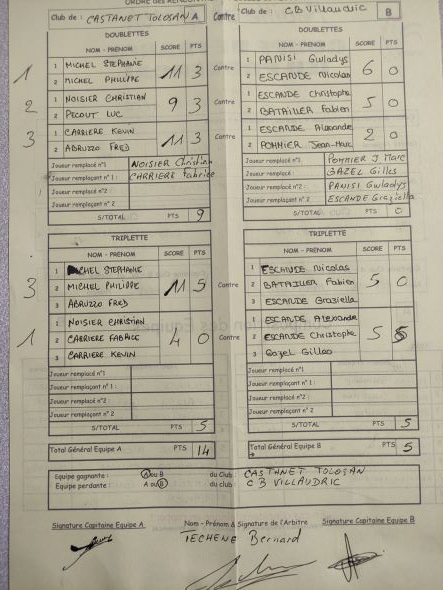 Club de : CASTANET TOLOSAN A Contre Club de : C B Villaudric B
DOUBLETTES DOUBLETTES
NOM - PRENOM SCORE PTS NOM - PRENOM SCORE PTS
1 1 MICHEL STEPHANE 11 3 Contre 1 PANISI Gwladys 6 0
2 MICHEL PHILIPPE 2 ESCANDE Nicolas
2 1 NOISIER CHRISTIAN 9 3 Contre 1 ESCANDE Christophe 5 0
2 PECOUT LUC 2 BATAILLER Fabien
3 1 CARRIERE KEVIN 11 3 Contre 1 ESCANDE Alexandre 2 0
2 ABRUZZO FRED 2 POMMIER Jean-Marc
Joueur remplacé n°1 NOISIER Christian Joueur remplacé n°1 POMMIER J Marc
Joueur remplaçant n°1 : CARRIERE Fabrice Joueur remplaçant n°1 : GAZEL Gilles
Joueur remplacé n°2 : Joueur remplacé n°2 : PANISI Gwladys
Joueur remplaçant n°2 Joueur remplaçant n°2 ESCANDE Graziella
S/TOTAL PTS 9 S/TOTAL PTS 0
TRIPLETTE TRIPLETTE
NOM - PRENOM SCORE PTS NOM - PRENOM SCORE PTS
3 1 MICHEL STEPHANE 11 5 Contre 1 ESCANDE Nicolas 5 0
2 MICHEL PHILIPPE 2 BATAILLER Fabien
3 ABRUZZO FRED 3 ESCANDE Graziella
1 1 NOISIER CHRISTIAN 4 0 Contre 1 ESCANDE Alexandre 5 5
2 CARRIERE FABRICE 2 ESCANDE Christophe
3 CARRIERE KEVIN 3 Gazel Gilles
Joueur remplacé n°1 Joueur remplacé n°1
Joueur remplaçant n°1 : Joueur remplaçant n°1 :
Joueur remplacé n°2 : Joueur remplacé n°2 :
Joueur remplaçant n°2 Joueur remplaçant n°2
S/TOTAL PTS 5 S/TOTAL PTS 5
Total Général Equipe A PTS 14 Total Général Equipe B PTS 5
Equipe gagnante : A ou B du Club : CASTANET TOLOSAN
Equipe perdante : A ou B du club : C B VILLAUDRIC
Signature Capitaine Equipe A Nom - Prénom & Signature de l'Arbitre Signature Capitaine Equipe B
TECHENE Bernard